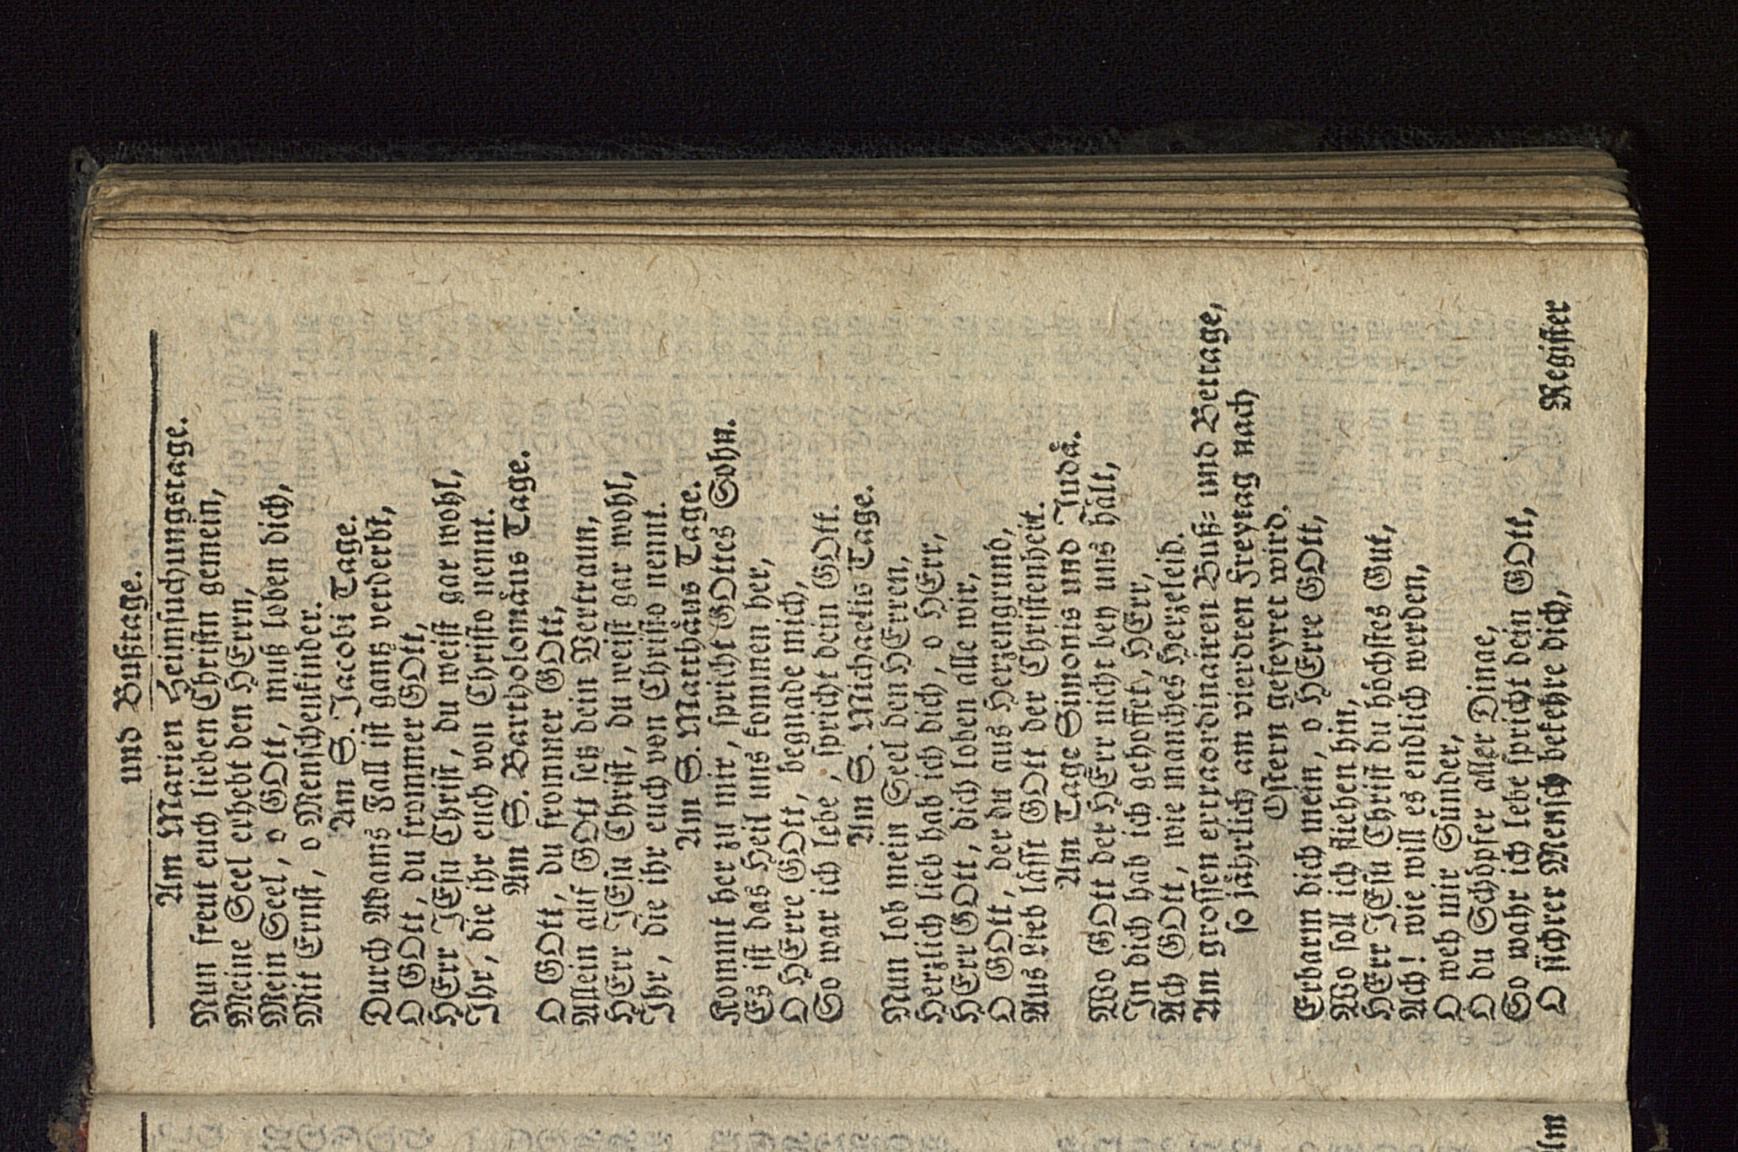 und Bußtage.
Am Marien Heimsuchungstage.
Nun freut euch lieben Christn gemein,
Meine Seel erhebt den HErrn,
Mein Seel, o GOtt, muß loben dich,
Mit Ernst, o Menschenkinder.
Am S. Jacobi Tage.
Durch Adams Fall ist gantz verderbt,
O GOtt, du frommer GOtt,
HErr JEsu Christ, du weist gar wohl,
Ihr, die ihr euch von Christo nennt.
Am S. Bartholomäus Tage.
O GOtt, du frommer GOtt,
Allein auf GOtt setz dein Vertraun,
HErr JEsu Christ, du weist gar wohl,
Ihr, die ihr euch von Christo nennt.
Am S. Matthäus Tage.
Kommt her zu mir, spricht GOttes Sohn.
Es ist das Heil uns kommen her,
O HErre GOtt, begnade mich,
So war ich lebe, spricht dein GOtt.
Am S. Michaelis Tage.
Nun lob mein Seel den HErren,
Herzlich lieb hab ich dich, o HErr,
HErr GOtt, dich loben alle wir,
O GOtt, der du aus Herzengrund,
Aus Lieb läßt GOtt der Christenheit.
Am Tage Simonis und Judä.
Wo GOtt der HErr nicht bey uns hält,
In dich hab ich gehoffet, HErr,
Ach GOtt, wie manches Herzeleid.
Am grossen extraordinairen Buß- und Bettage,
so jährlich am vierdten Freytag nach
Ostern gefeyret wird.
Erbarm dich mein, o HErre GOtt,
Wo soll ich fliehen hin,
HErr JEsu Christ du höchstes Gut,
Ach! wie will es endlich werden,
O weh mir Sünder,
O du Schöpfer aller Dinge,
So wahr ich lebe spricht dein GOtt,
O sichrer Mensch bekehre dich,
Register